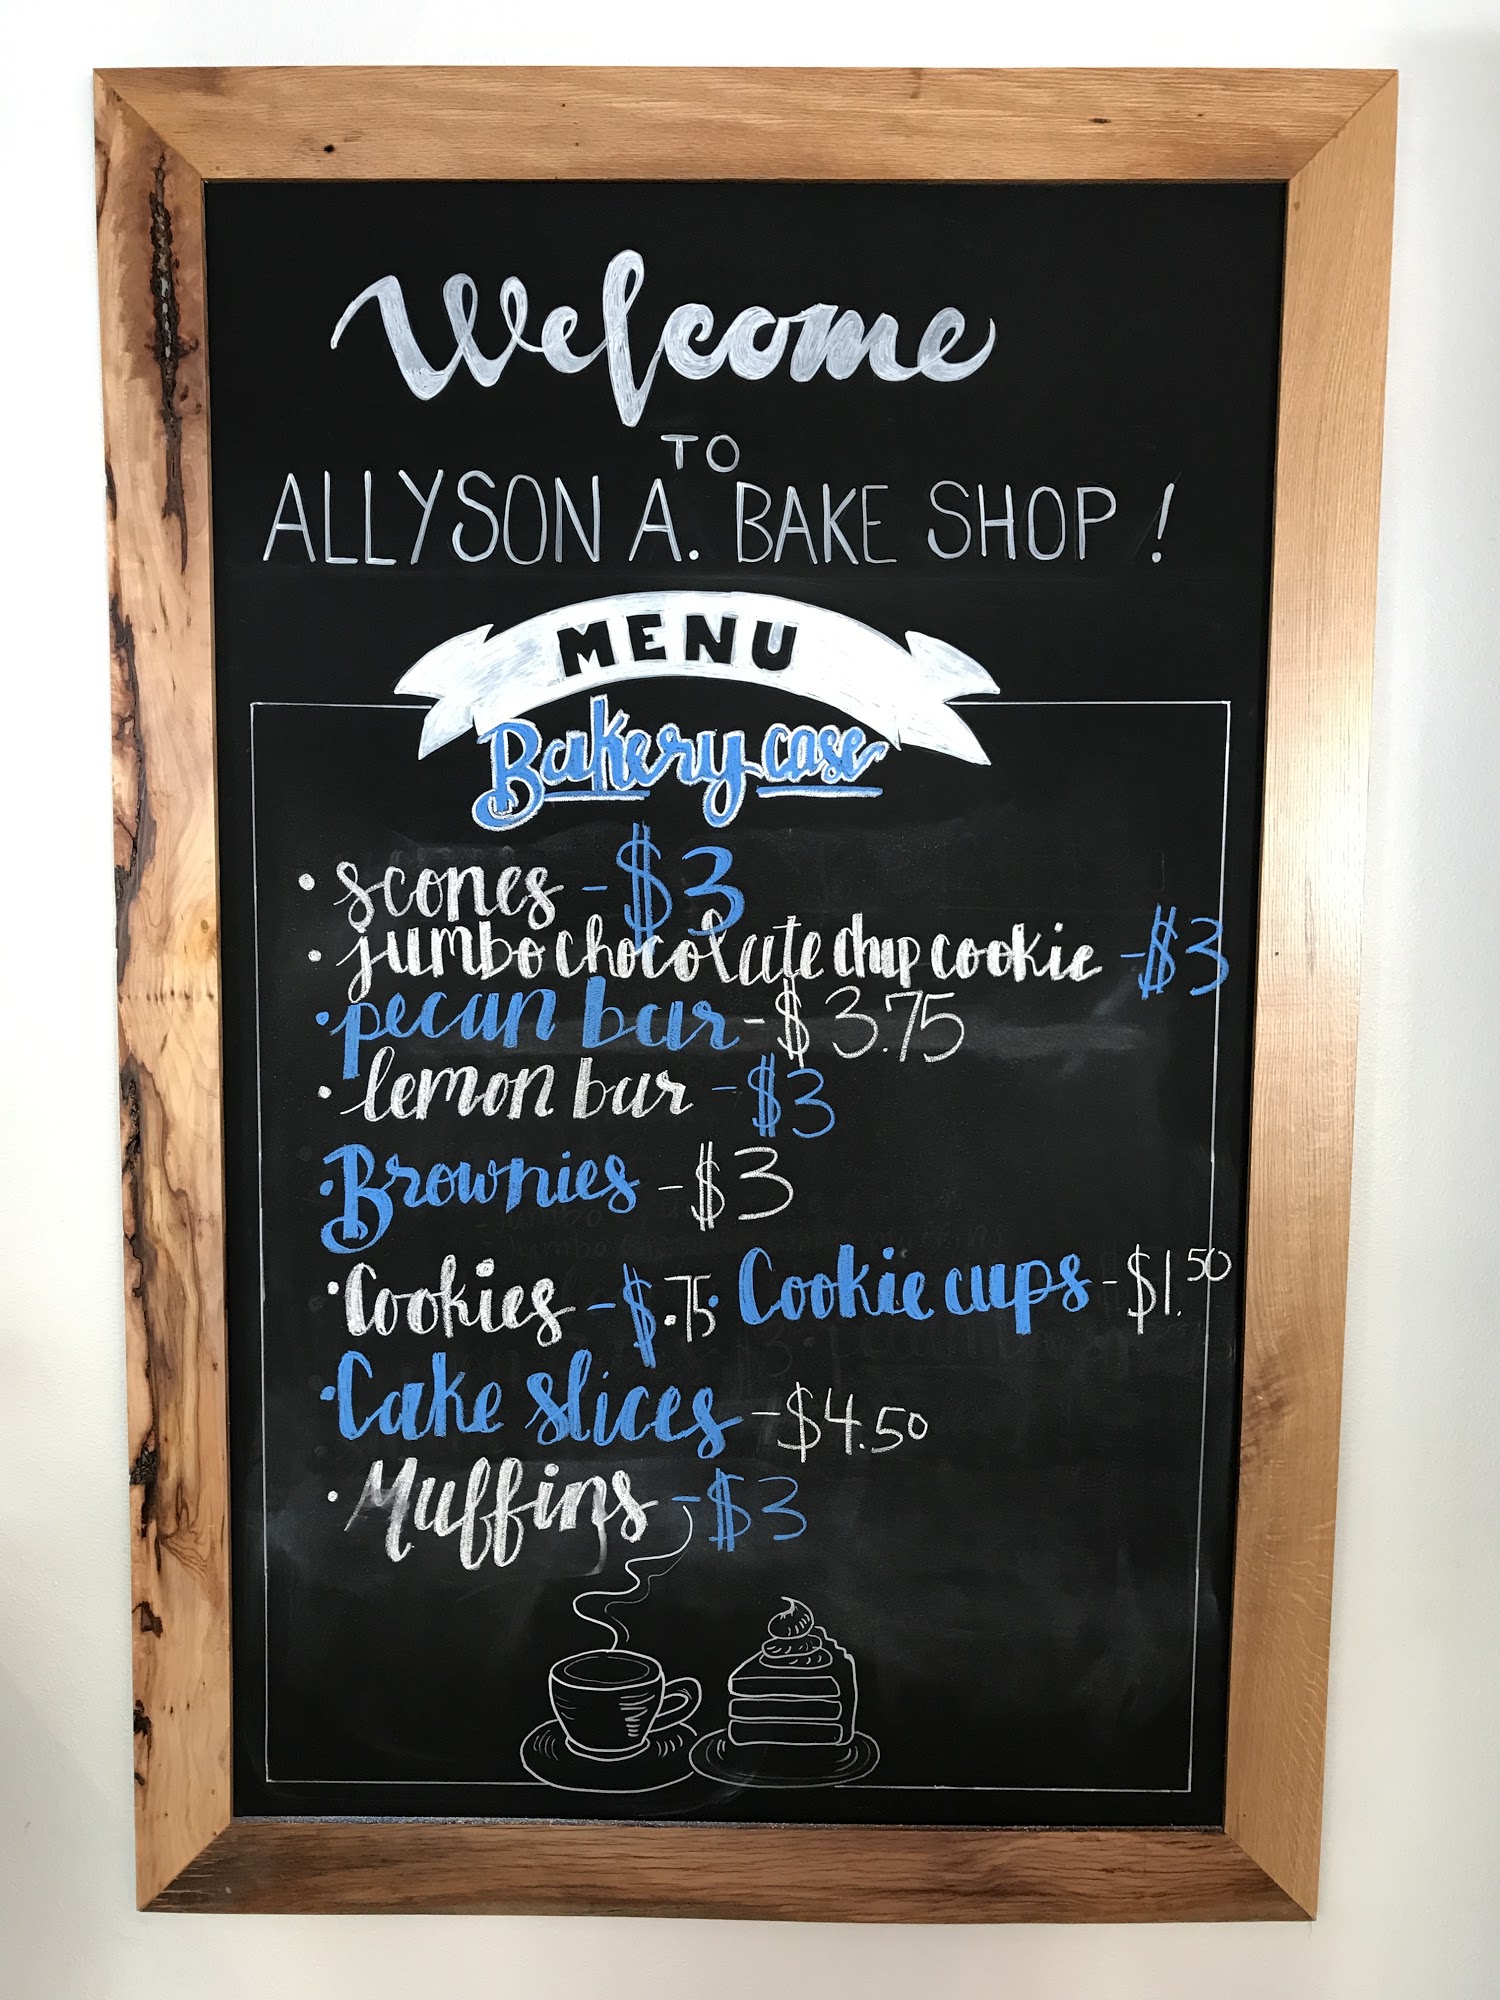 Welcome
TO
ALLYSON A. BAKE SHOP!
MENU
Bakery case
• scones - $3
• jumbo chocolate chip cookie - $3
• pecan bar - $3.75
• lemon bar - $3
• Brownies - $3
• Cookies - $.75 • Cookie cups - $1.50
• Cake slices - $4.50
• Muffins - $3